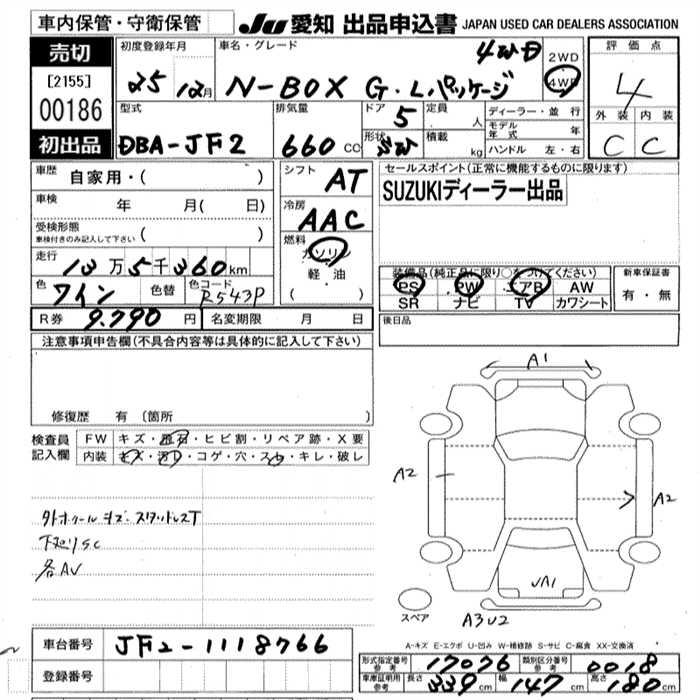 車内保管・守衛保管
JU 愛知 出品申込書 JAPAN USED CAR DEALERS ASSOCIATION
売切
[2155]
00186
初出品
初度登録年月
25 12月
車名・グレード
N-BOX G・Lパッケージ
4WD
2WD
4WD
評価点
4
外装 内装
C C
型式
DBA-JF2
排気量
660 cc
ドア
5
形状
SW
定員
人
積載
kg
ディーラー・並行
モデル年式 年
ハンドル 左・右
車歴
自家用・( )
車検
年 月( 日)
受検形態
車検付きのみ記入して下さい ( )
走行
13万5千360km
色
ワイン
色替
色コード
R543P
R券 9.790 円
名変期限 月 日
シフト
AT
冷房
AAC
燃料
ガソリン
・
軽油
( )
セールスポイント(正常に機能するものに限ります)
SUZUKIディーラー出品
装備品(純正品に限り○をつけてください)
PS PW エアB AW
SR ナビ TV カワシート
新車保証書
有・無
後日品
注意事項申告欄(不具合内容等は具体的に記入して下さい)
修復歴 有(箇所 )
検査員
記入欄
FW キズ・飛石・ヒビ割・リペア跡・X要
内装 キズ・汚れ・コゲ・穴・スレ・キレ・破レ
外ホイールキズ・スタッドレスT
下廻りSC
各AV
A1
A2
A2
A1
A3U2
スペア
A-キズ E-エクボ U-凹み W-補修跡 S-サビ C-腐食 XX-交換済
車台番号 JF2-1118766
登録番号
形式指定番号
参考
17076
類別区分番号
参考
0018
車庫証明用
参考
長さ 339cm 幅 147cm 高さ 180cm